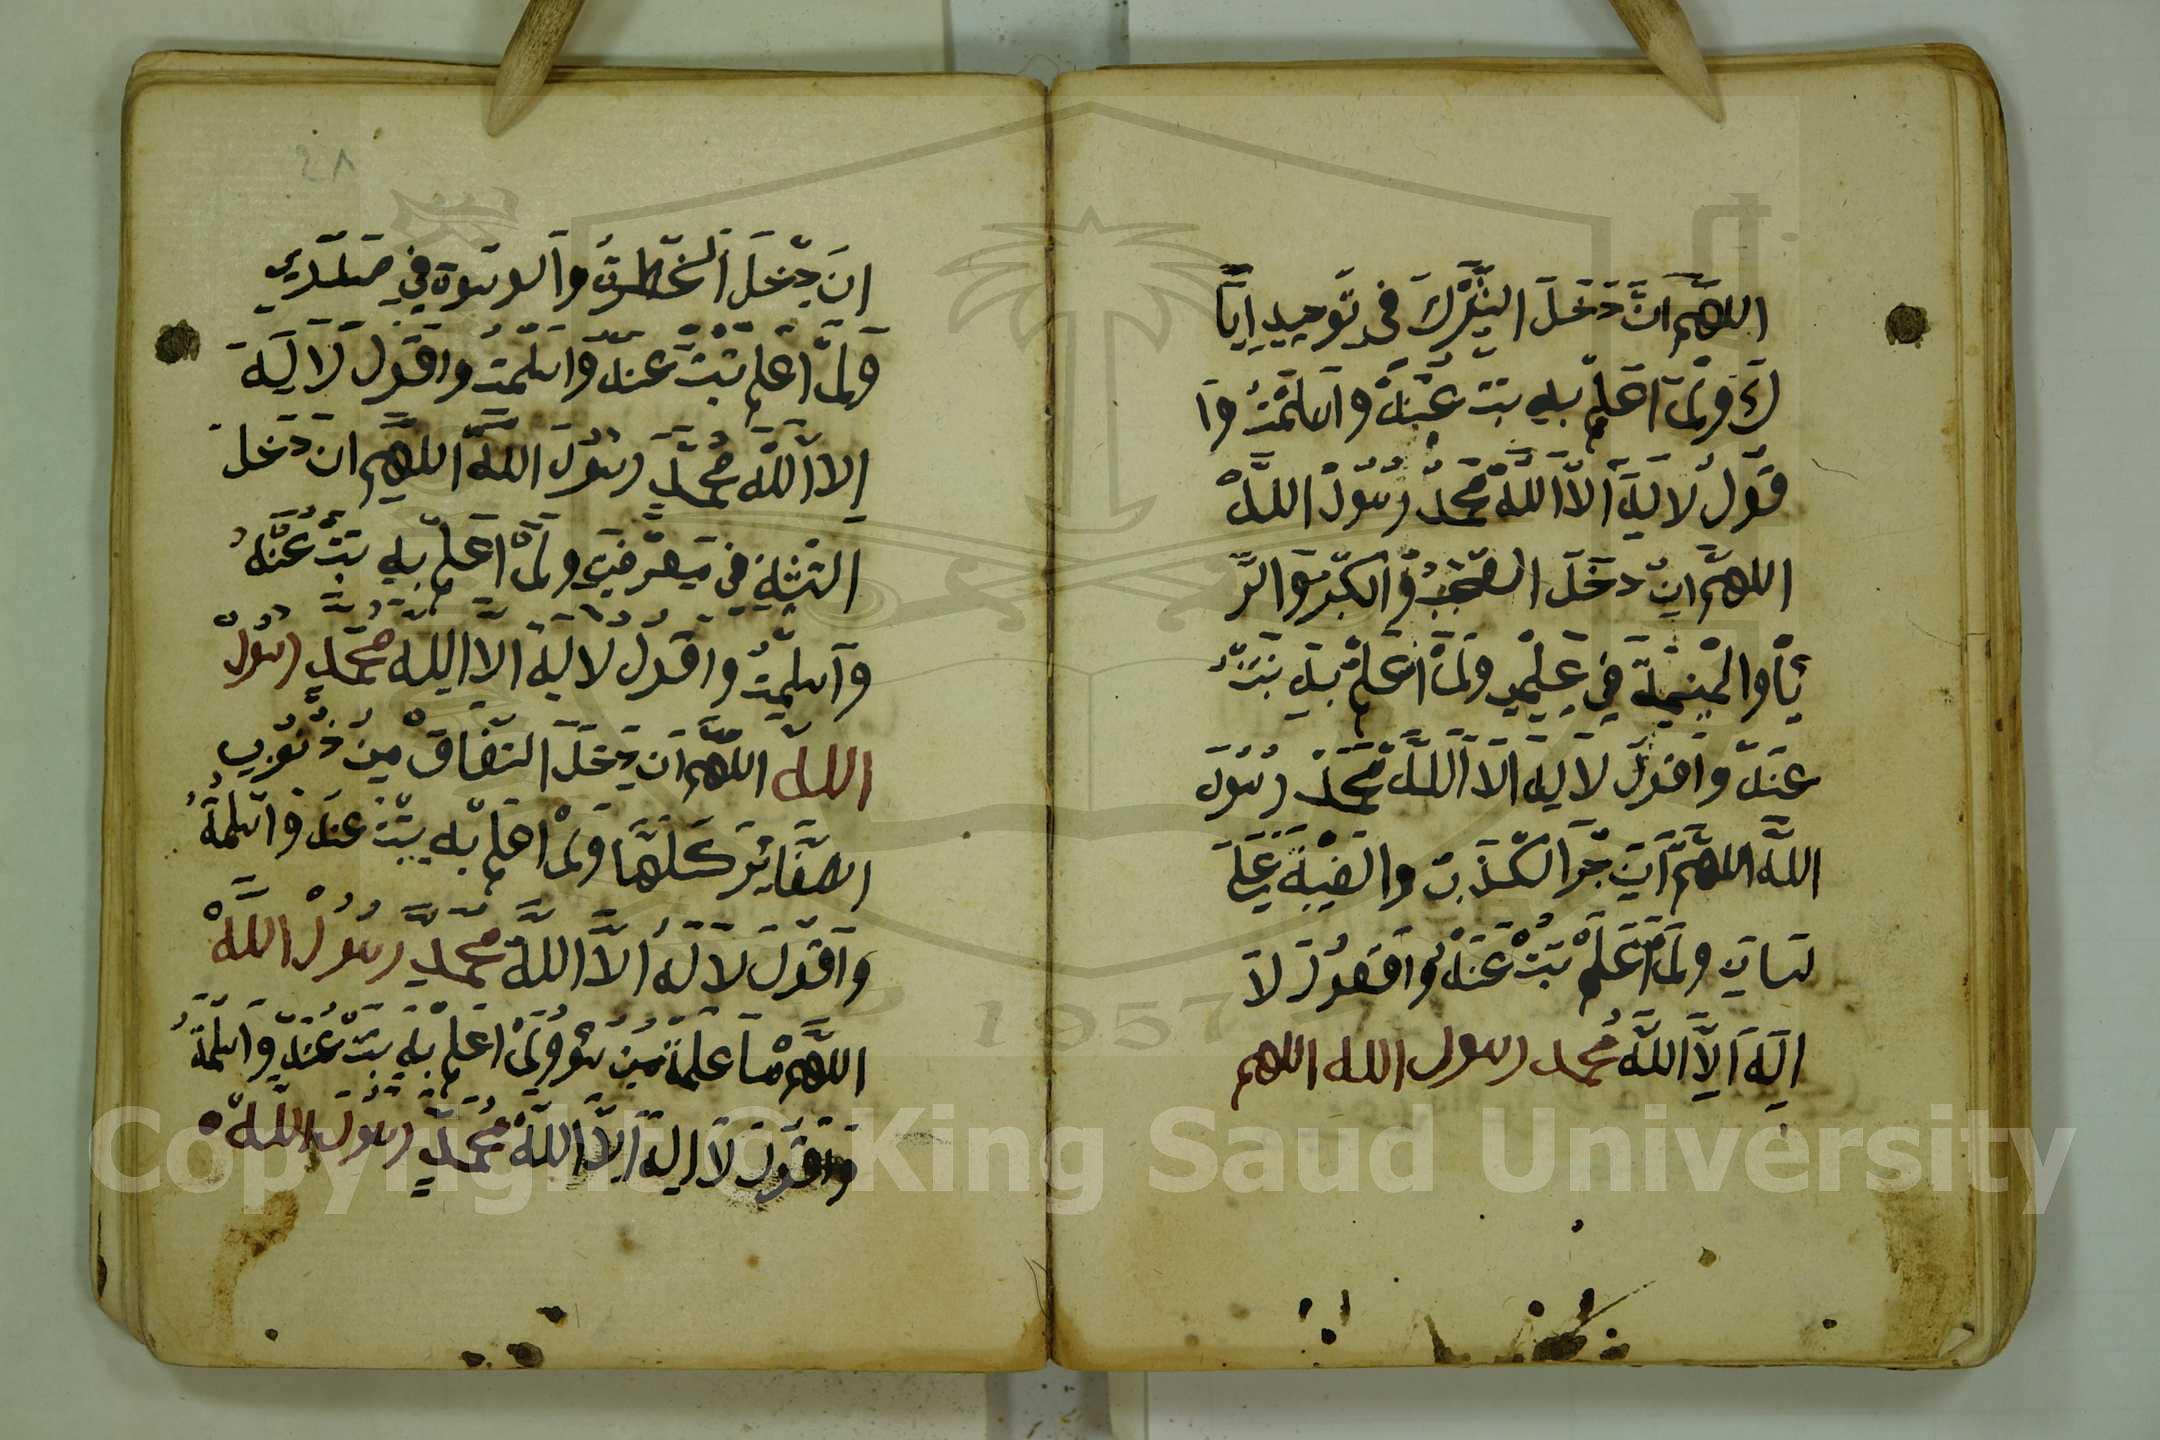 اللهم ان دخل الشرك في توحيد ايا
ك ولم اعلم به تبت عنه واسلمت وا
قول لا اله الا الله محمد رسول الله
اللهم ان دخل العجب والكبر والر
يا والمنيمة في علمي ولم اعلم به تبت
عنه واقول لا اله الا الله محمد رسول
الله اللهم ان جر الكذب والغيبة على
لساني ولم اعلم تبت عنه واقول لا
اله الا الله محمد رسول الله اللهم
٢٨
ان دخل الخطرة والوسوة في صدري
ولم اعلم تبت عنه واسلمت واقول لا اله
الا الله محمد رسول الله اللهم ان دخل
التشبيه في معرفتي ولم اعلم به تبت عنه
واسلمت واقول لا اله الا الله محمد رسول
الله اللهم ان دخل النفاق من ذنوبي
الصغاير كلها ولم اعلم به تبت عنه واسلمة
واقول لا اله الا الله محمد رسول الله
اللهم ما علمة من سوء ولم اعلم به تبت عنه واسلمة
واقول لا اله الا الله محمد رسول الله
1957
Copyright © King Saud University